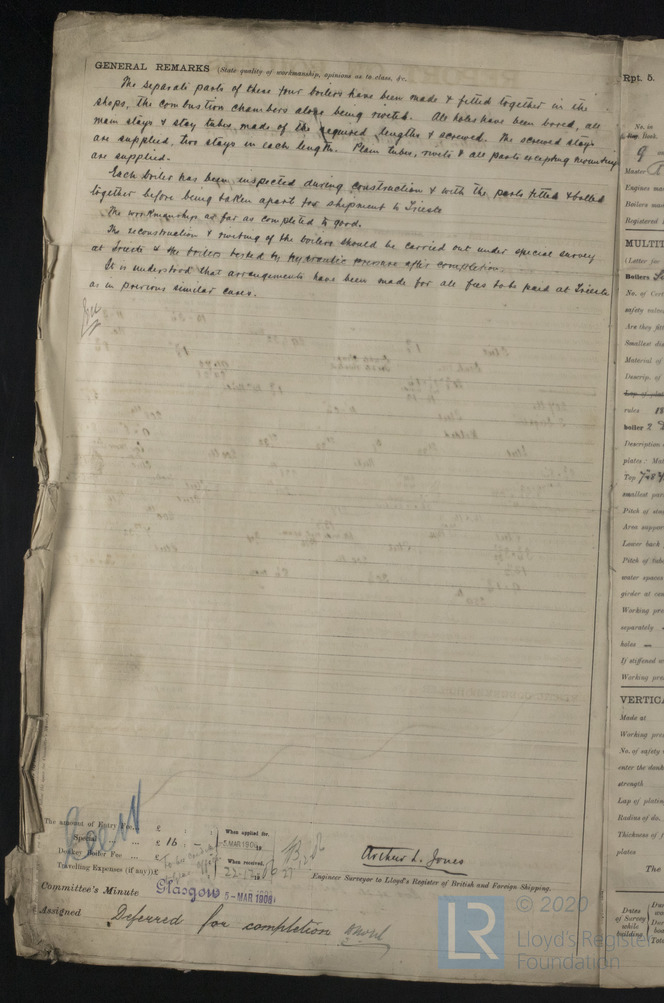 GENERAL REMARKS (State quality of workmanship, opinions as to class, &c.
The separate parts of these four boilers have been made & fitted together in the
shops, the combustion chambers alone being riveted. All holes have been bored, all
main stays & stay tubes made of the required lengths & screwed. The screwed stays
are supplied, two stays in each length. Plain tubes, rivets & all parts excepting mountings
are supplied.
Each boiler has been inspected during construction & with the parts fitted & bolted
together before being taken apart for shipment to Trieste
The workmanship as far as completed is good.
The reconstruction & riveting of the boilers should be carried out under special survey
at Trieste & the boilers tested by hydraulic pressure after completion.
It is understood that arrangements have been made for all fees to be paid at Trieste
as in previous similar cases.
The amount of Entry Fee... £
Special ... £ 16
Donkey Boiler Fee ... £
Travelling Expenses (if any) £
When applied for,
5 MAR 1906
When received,
Arthur L. Jones
Engineer Surveyor to Lloyd's Register of British and Foreign Shipping.
Committee's Minute Glasgow 5-MAR 1906
Assigned Deferred for completion
Rpt. 5.
No. in
Book.
9
Master
Engines ma
Boilers ma
Registered
MULTI
(Letter for
Boilers
No. of Cer
safety valve
Are they fitt
Smallest dis
Material of
Descrip. of
Lap of plat
rules
boiler 2
Description
plates: Mat
Top
smallest par
Pitch of sta
Area suppor
Lower back
Pitch of tube
water spaces
girder at cen
Working pre
separately
holes
If stiffened w
Working pres
VERTICA
Made at
Working pres
No. of safety
enter the donk
strength
Lap of plating
Radius of do.
Thickness of
plates
The
Dates
of Survey
while
building
© 2020
LR
Lloyd's Register
Foundation